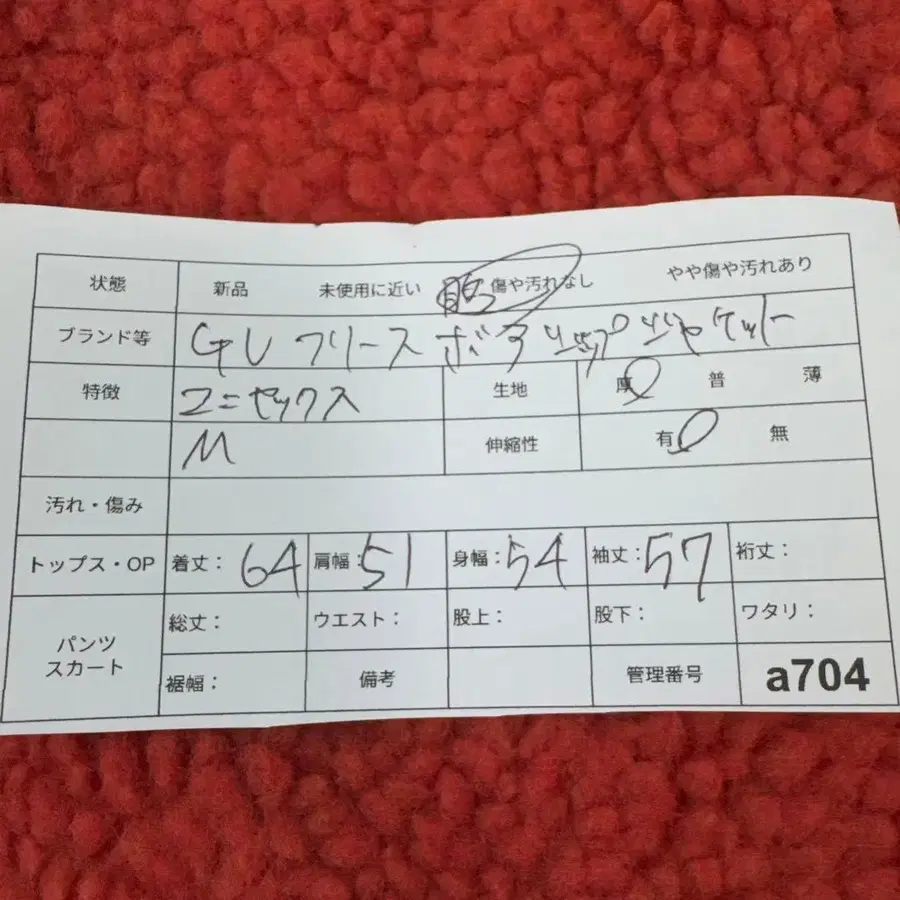 状態 新品 未使用に近い 傷や汚れなし やや傷や汚れあり
ブランド等 GU フリース ボア ジップ ジャケット
特徴 ユニセックス 生地 厚 普 薄
M 伸縮性 有 無
汚れ・傷み
トップス・OP 着丈: 64 肩幅: 51 身幅: 54 袖丈: 57 裄丈:
パンツ スカート 総丈: ウエスト: 股上: 股下: ワタリ:
裾幅: 備考 管理番号 a704